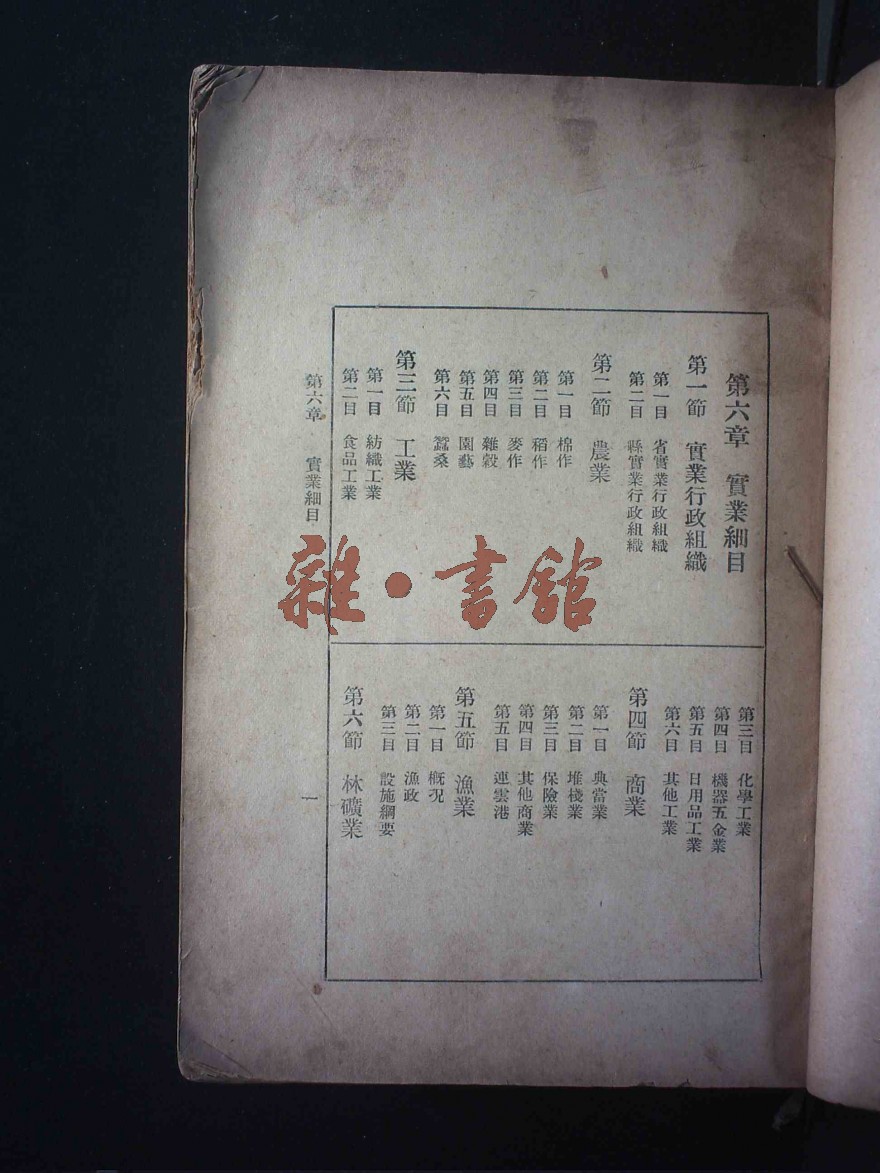 第六章　實業細目
第一節　實業行政組織
第一目　省實業行政組織
第二目　縣實業行政組織
第二節　農業
第一目　棉作
第二目　稻作
第三目　麥作
第四目　雜穀
第五目　園藝
第六目　蠶桑
第三節　工業
第一目　紡織工業
第二目　食品工業
第三目　化學工業
第四目　機器五金業
第五目　日用品工業
第六目　其他工業
第四節　商業
第一目　典當業
第二目　堆棧業
第三目　保險業
第四目　其他商業
第五目　連雲港
第五節　漁業
第一目　概况
第二目　漁政
第三目　設施綱要
第六節　林礦業
第六章　實業細目
一
雜·書館